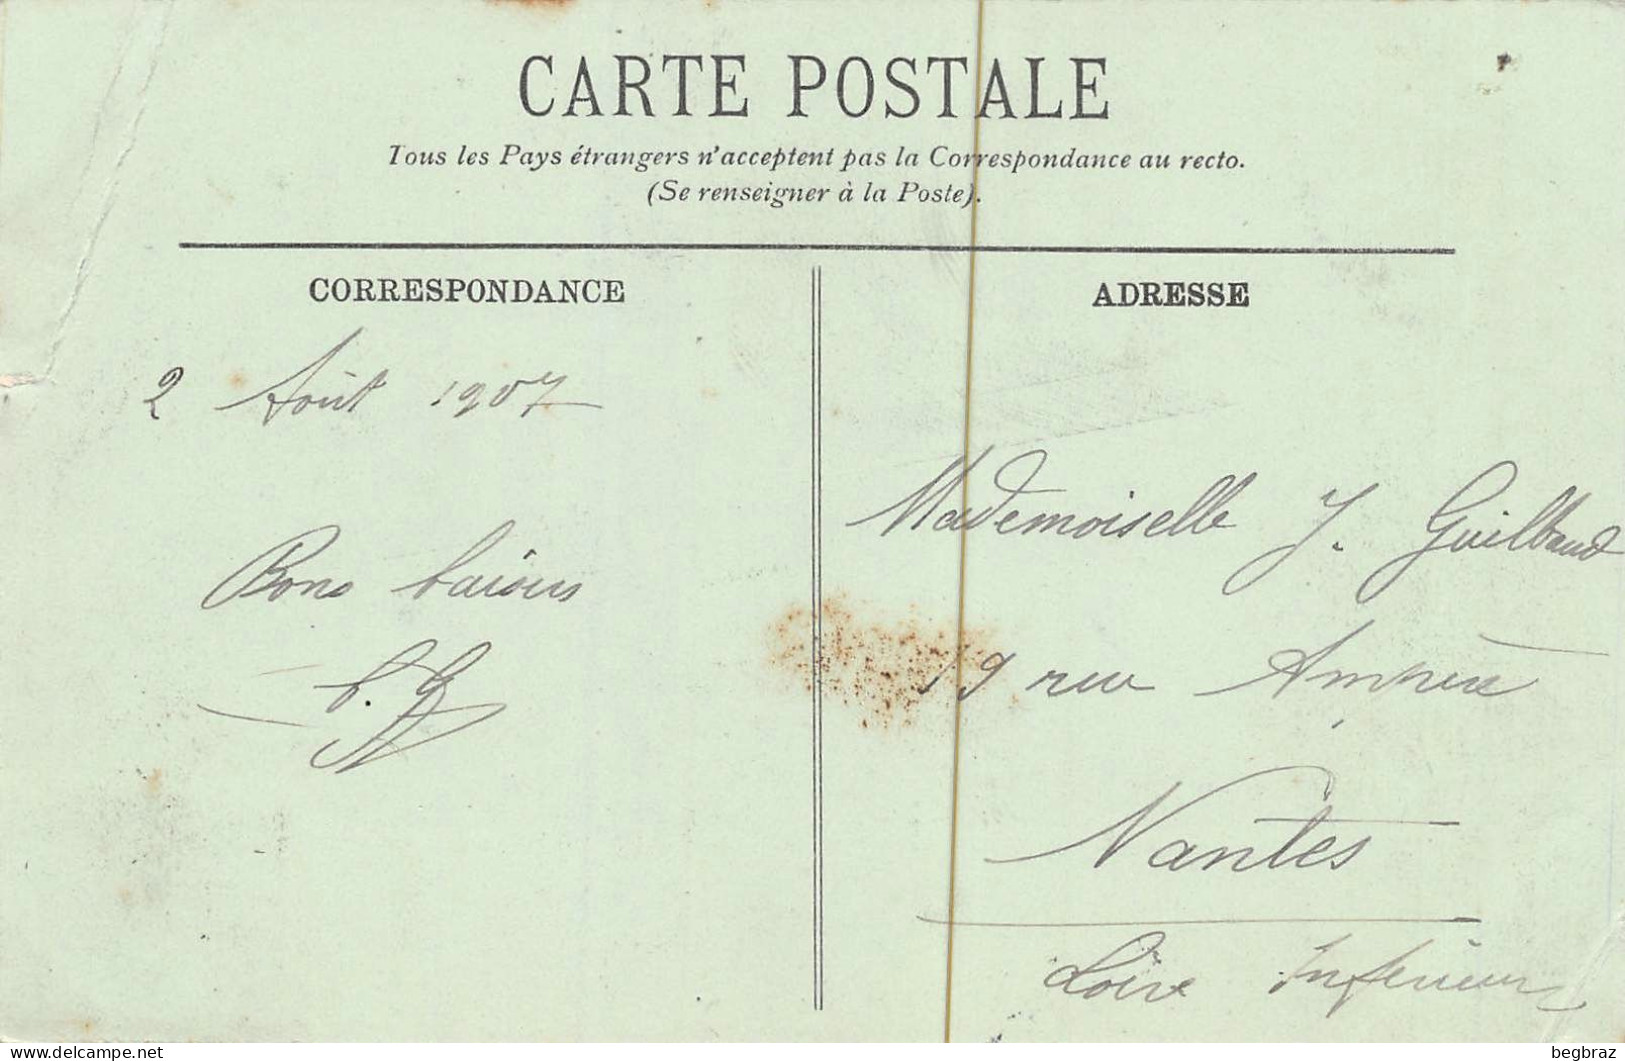 CARTE POSTALE
Tous les Pays étrangers n'acceptent pas la Correspondance au recto.
(Se renseigner à la Poste).
CORRESPONDANCE
2 Août 1907
Bons baisers
ADRESSE
Mademoiselle J. Guilbaud
19 rue Ampère
Nantes
Loire Inférieure
begbraz